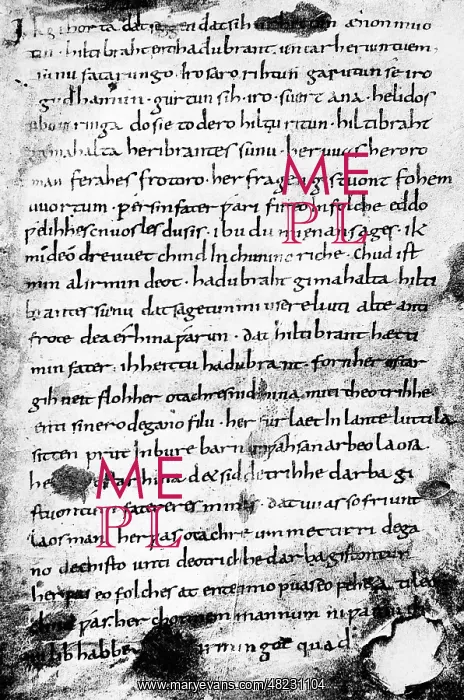 Ik gihorta dat seggen dat sih ænon muo
tin · hiltibraht enti hadubrant · untar heriuntuem,
sunu fatarungo · iro saro rihtun garutun se iro
gudhamun · gurtun sih · iro · suert ana · helidos
ubar ringa do sie to dero hiltu ritun · hiltibraht
gimahalta heribrantes sunu · her uuas heroro
man ferahes frotoro · her fragen gistuont fohem
uuortum · ƿer sin fater ƿari fireo In folche eddo
ƿelihhes cnuosles du sis · ibu du mi enan sages · ik
mideo dre uuet chind In chunincriche · chud ist
min al irmin deot · hadubraht gimahalta hilti
brantes sunu dat sagetun mi usere liuti alte anti
frote dea érhina ƿarun · dat hiltibrant hætti
min fater · ih heittu hadubrant · forn her ostar
gihueit floh her otachres nid hina miti theotrihhe
enti sinero degano filu · her furlaet In lante luttila
sitten prut In bure barn unƿahsan arbeo laosa ·
he ostar hina det sid detrihhe darba gi
stuontum fatereres mines · dat uuas so friunt
laos man her ƿas otachre ummet tirri dega
no dechisto unti deotrichhe darba gistontun
her ƿas eo folches at ente imo ƿuas eo peheta ti leop
ƿas her chonnem mannum ni
lib habbe irmingot quad
ME
PL
ME
PL
www.maryevans.com/48231104